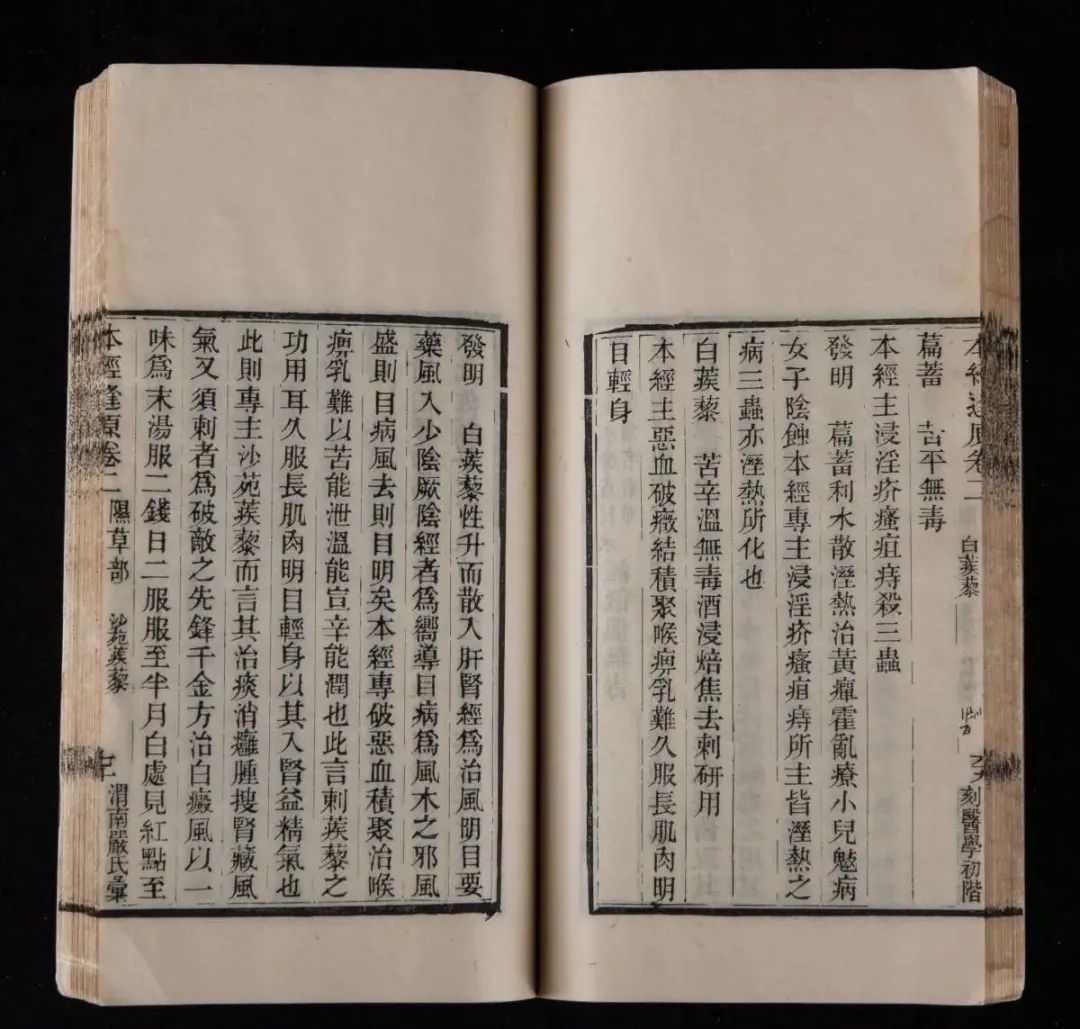 本經逢原卷二 白蒺藜 刻醫學初階
萹蓄 苦平無毒
本經主浸淫疥瘙疽痔殺三蟲
發明 萹蓄利水散溼熱治黃癉霍亂療小兒鬾病
女子陰蝕本經專主浸淫疥瘙疽痔所主皆溼熱之
病三蟲亦溼熱所化也
白蒺藜 苦辛溫無毒酒浸焙焦去刺研用
本經主惡血破癥結積聚喉痹乳難久服長肌肉明
目輕身
發明 白蒺藜性升而散入肝腎經為治風明目要
藥風入少陰厥陰經者為嚮導目病為風木之邪風
盛則目病風去則目明矣本經專破惡血積聚治喉
痹乳難以苦能泄溫能宣辛能潤也此言刺蒺藜之
功用耳久服長肌肉明目輕身以其入腎益精氣也
此則專主沙苑蒺藜而言其治痰消癰腫搜腎藏風
氣又須刺者為破敵之先鋒千金方治白癜風以一
味為末湯服二錢日二服服至半月白處見紅點至
本經逢原卷二 隰草部 沙苑蒺藜 渭南嚴氏彙